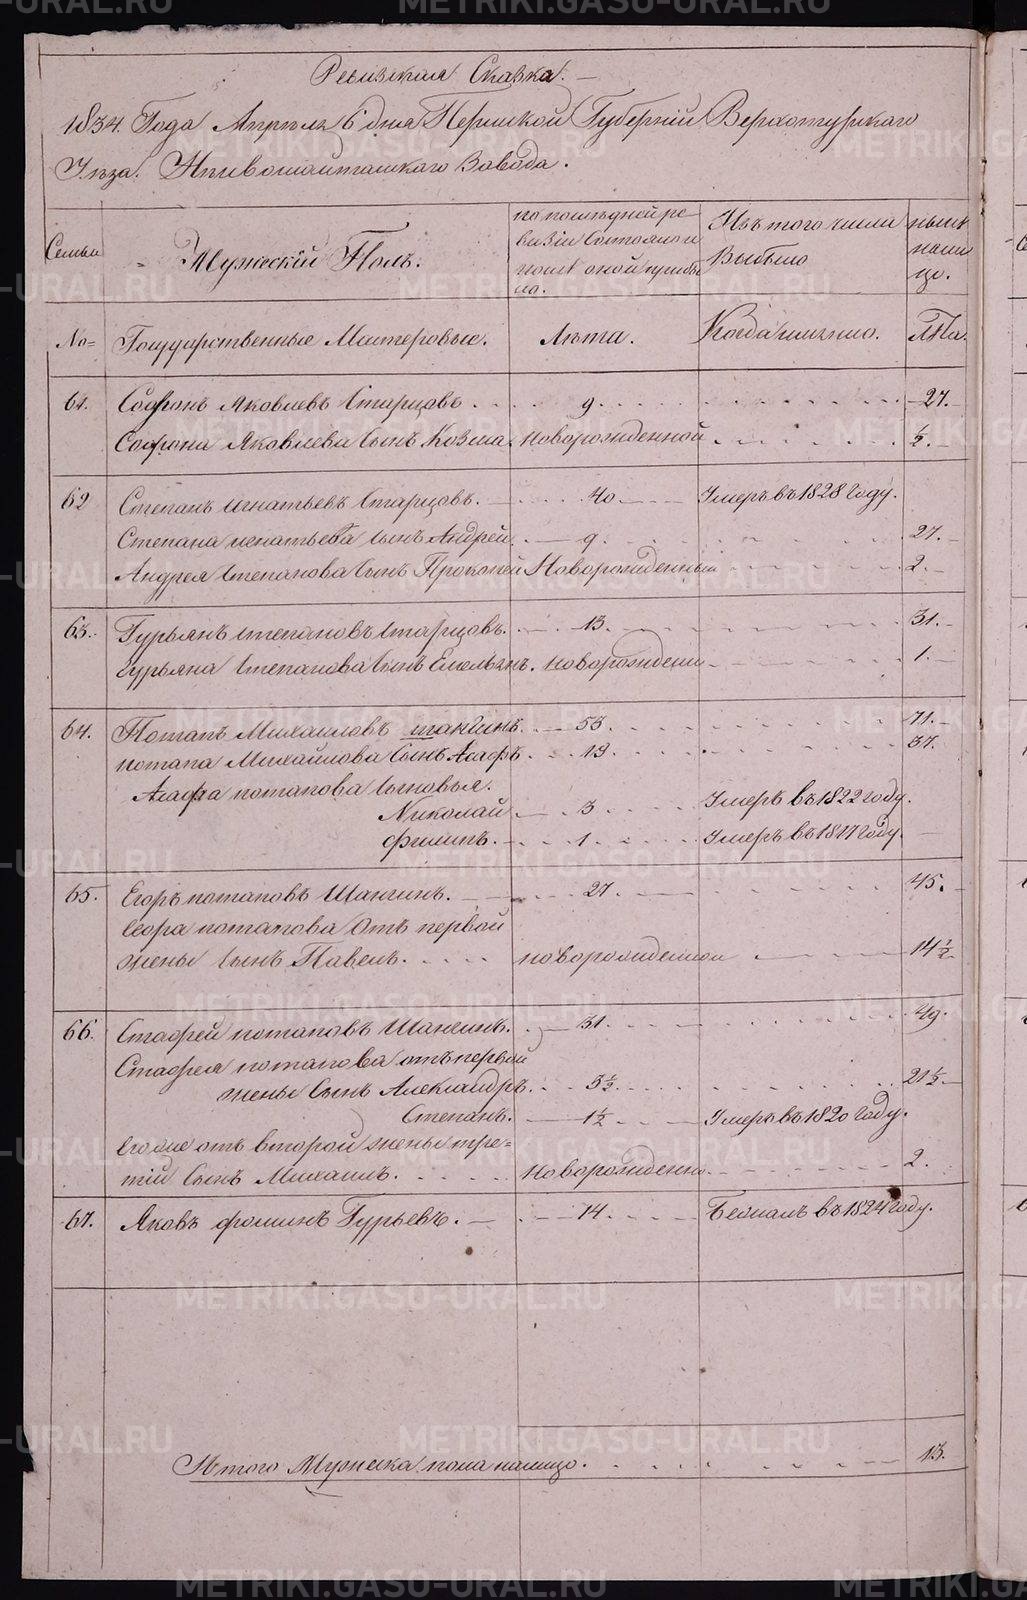 Ревизская Сказка.
1834. Года Апреля 6 дня Пермской Губерніи Верхотурскаго
Уѣзда. Нивошайтанскаго Завода.
Семьи
Мужескій Полъ.
по последней ре
визіи Состояло и
после оной прибы
ло.
Изъ того числа
Выбыло
ныне
нали
цо.
No=
Государственные Мастеровые.
Лѣта.
Когда именно.
Лѣта.
61. Софронъ Яковлевъ Старцовъ. 9. 27.
Софрона Яковлева Сынъ Козма. Новорожденной ½.
62 Степанъ игнатьевъ Старцовъ. 40 Умеръ въ 1828 Году.
Степана игнатьева Сынъ Андрей. 9. 27.
Андрея Степанова Сынъ Прокопей Новорожденный 2.
63. Гурьянъ Степановъ Старцовъ. 13. 31.
Гурьяна Степанова Сынъ Емельянъ. новорожденн 1.
64. Потапъ Михаиловъ шангинъ. 53. 71.
потапа Михайлова Сынъ Асафъ. 19. 37.
Асафа потапова Сыновья.
Николай 3. Умеръ въ 1822 году.
Филипъ. 1. Умеръ въ 1817 Году.
65. Егоръ потаповъ Шангинъ. 27. 45.
Егора потапова Отъ первой
жены Сынъ Павелъ. новорожденной 14½
66. Стафей потаповъ Шангинъ. 31. 49.
Стафея потапова отъ первой
жены Сынъ Александръ. 3½. 21½.
Степанъ. 1½ Умеръ въ 1820 Году.
Его же отъ второй жены тре=
тій Сынъ Михаилъ. Новорожденно 2.
67. Яковъ фоминъ Гурьевъ. 14. Бежалъ въ 1824 году.
Итого Мужеска пола налицо. 13.
METRIKI.GASO-URAL.RU